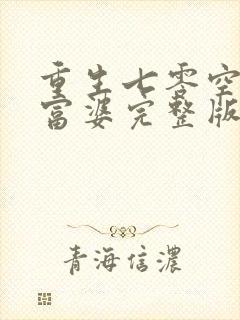 重生七零空
富婆完整版
青海信濃